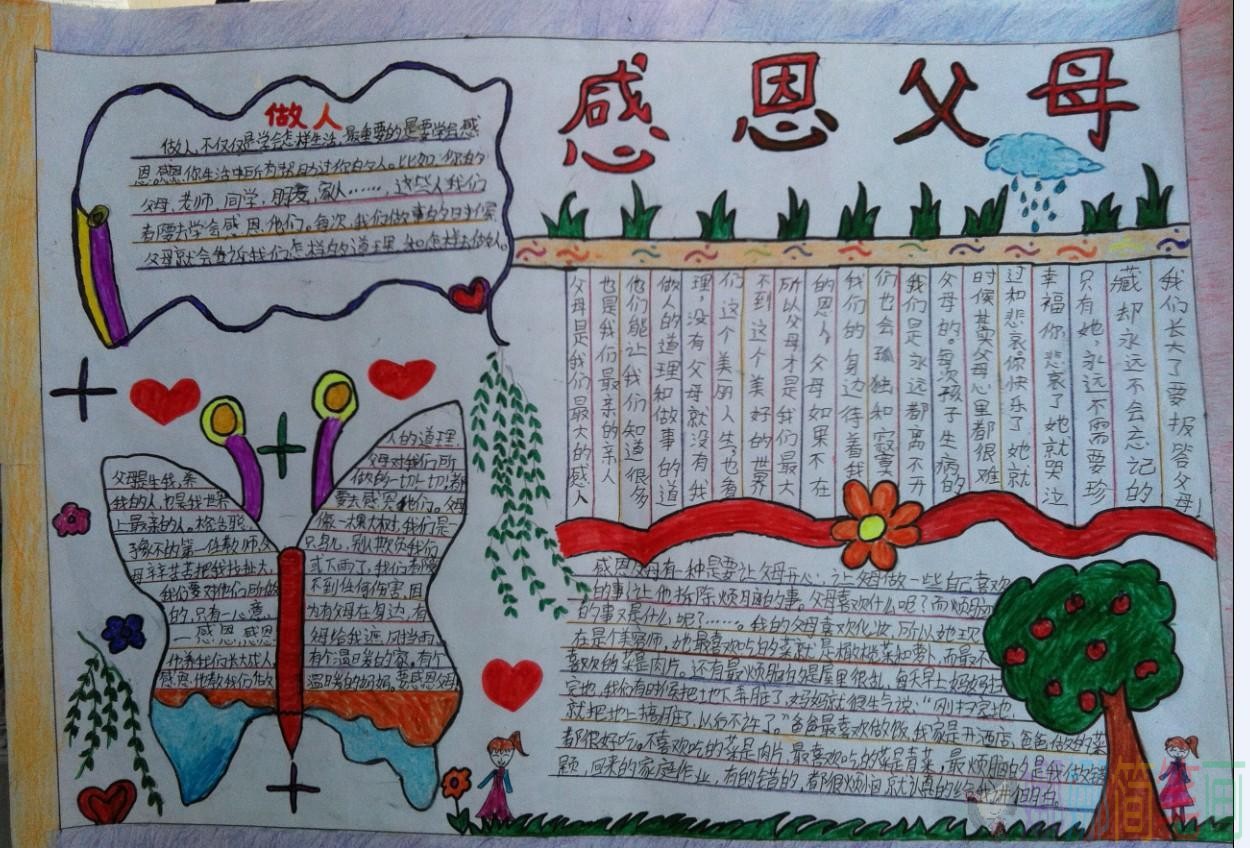 感恩父母
做人
做人,不仅仅是学会怎样生活,最重要的是要学会感
恩。感恩你生活中所有帮助过你的人。比如,你的
父母,老师,同学,朋友,家人……,这些人我们
都要去学会感恩他们。每次,我们做事的时候
父母就会告诉我们怎样的道理和怎样去做人。
父母是我们最大的感人
也是我们最亲的亲人
他们能让我们知道很多
做人的道理和做事的道
理,没有父母就没有我
们这个美丽人生,也看
不到这个美好的世界
所以父母才是我们最大
的恩人。父母如果不在
我们的身边待着我
们也会孤独和寂寞
我们是永远都离不开
父母的。每次孩子生病的
时候其实父母心里都很难
过和悲哀。你快乐了她就
幸福你悲哀了她就哭泣
只有她,永远不需要珍
藏却永远不会忘记的
我们长大了要报答父母!
父母是生我,养
我的人,也是我世界
上最亲的人。
的第一位教师,父
母辛辛苦苦把我拉扯大,
我们要对他们所做
的,只有一心意
—感恩感恩
他养我们长大成人,
感恩,他教我们做
人的道理,
父母对我们所
做的一切一切!都
要去感恩他们。父母
像一棵大树,我们是一
只鸟儿,别人欺负我们
或下雨了,我们都
不到任何伤害,因
为有父母在身边,有
母给我遮风挡雨,
有个温暖的家。有个
温暖的妈妈。要感恩父
感恩父母有一种是要让父母开心,让父母做一些自己喜欢
的事,让他拆除烦恼的事。父母喜欢什么呢?而烦恼
的事又是什么呢?……。我的父母喜欢化妆,所以她现
在是个美容师,她最喜欢吃的菜就是橄榄菜和萝卜,而最不
喜欢的菜是肉片。还有最烦恼的是屋里很乱,每天早上妈妈扫
完地,我们有时候把地下弄脏了,妈妈就很生气说:“刚扫完地,
就把地上搞脏了,以后不许了。”爸爸最喜欢做饭,我家是开酒店,爸爸做的菜
都很好吃。不喜欢吃的菜是肉片,最喜欢吃的菜是青菜,最烦恼的是我做错
题,回来的家庭作业,有的错的,都很烦恼就认真的给我讲明白。
简笔画